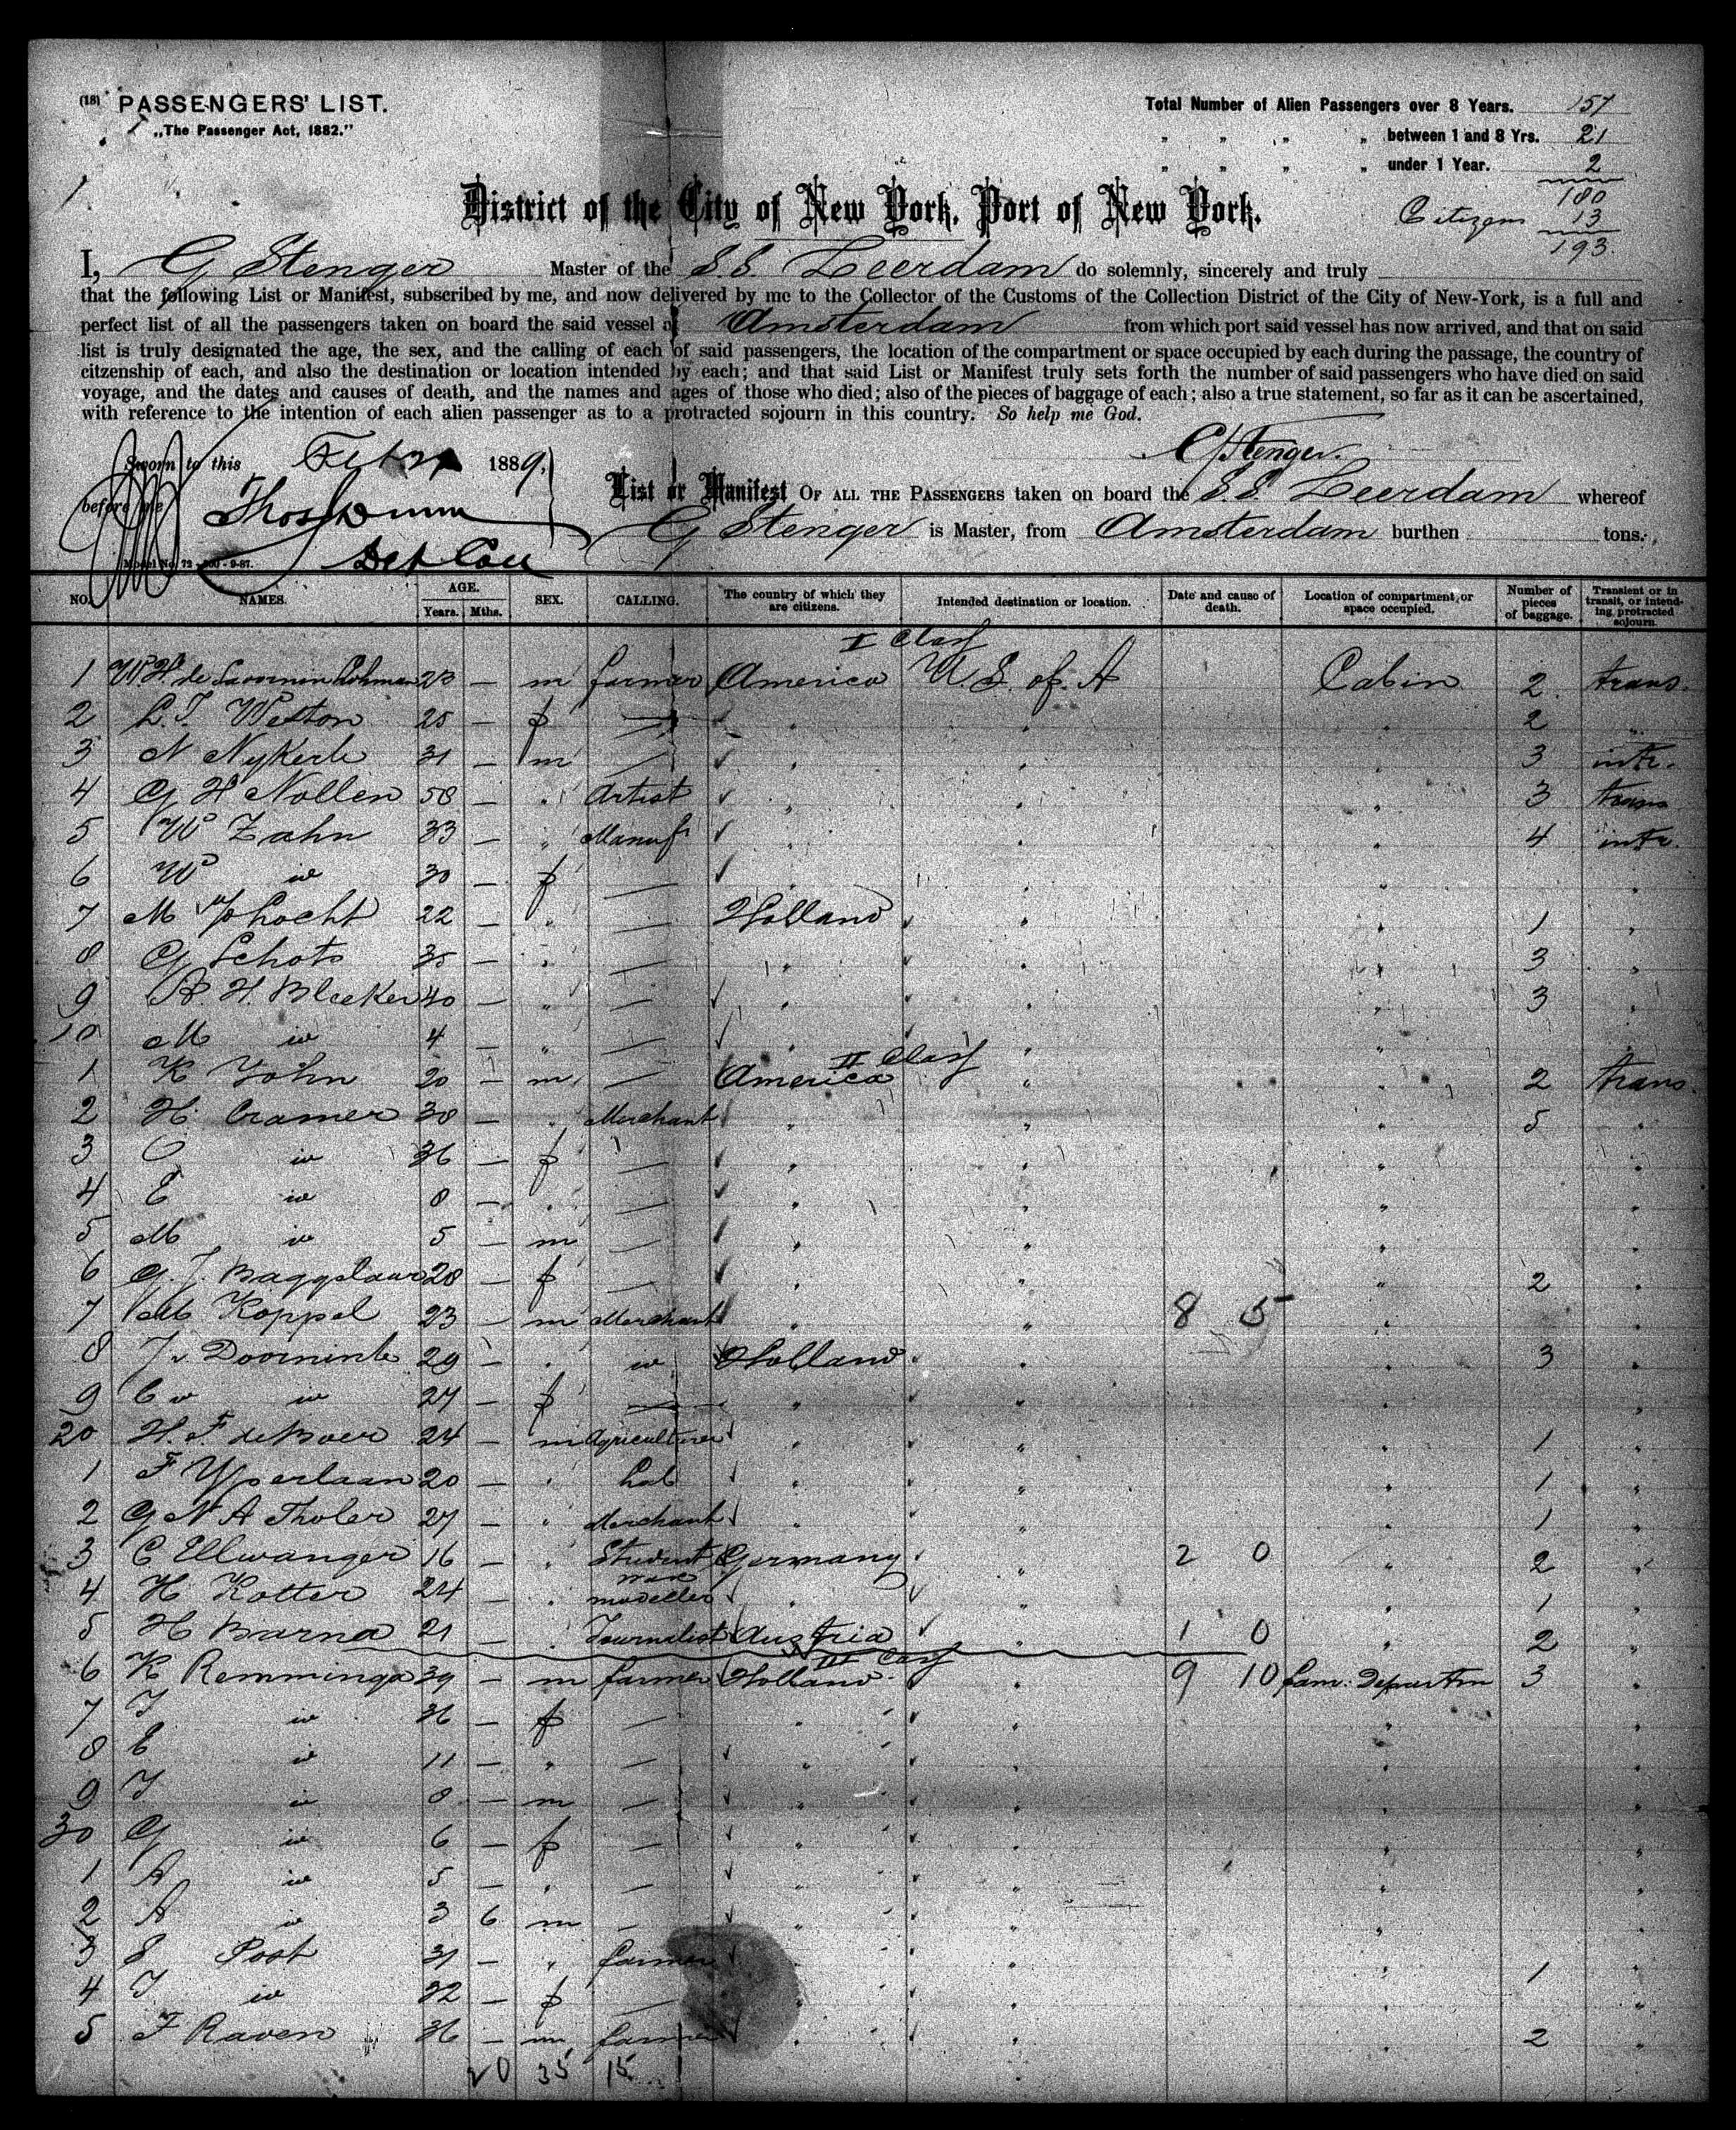 (18) PASSENGERS' LIST.
„The Passenger Act, 1882.”
Total Number of Alien Passengers over 8 Years. 157
„ „ „ „ between 1 and 8 Yrs. 21
„ „ „ „ under 1 Year. 2
180
Citizens 13
193.
District of the City of New York, Port of New York.
I, G Stenger Master of the S.S. Leerdam do solemnly, sincerely and truly
that the following List or Manifest, subscribed by me, and now delivered by me to the Collector of the Customs of the Collection District of the City of New-York, is a full and
perfect list of all the passengers taken on board the said vessel at Amsterdam from which port said vessel has now arrived, and that on said
list is truly designated the age, the sex, and the calling of each of said passengers, the location of the compartment or space occupied by each during the passage, the country of
citzenship of each, and also the destination or location intended by each; and that said List or Manifest truly sets forth the number of said passengers who have died on said
voyage, and the dates and causes of death, and the names and ages of those who died; also of the pieces of baggage of each; also a true statement, so far as it can be ascertained,
with reference to the intention of each alien passenger as to a protracted sojourn in this country. So help me God.
G Stenger.
Sworn to this Feb 1889,
before me Thos Dunn
Dep Coll
List or Manifest OF ALL THE PASSENGERS taken on board the S.S. Leerdam whereof
G Stenger is Master, from Amsterdam burthen tons.
NO. NAMES. AGE. Years. Mths. SEX. CALLING. The country of which they are citizens. Intended destination or location. Date and cause of death. Location of compartment or space occupied. Number of pieces of baggage. Transient or in transit, or intending protracted sojourn.
I Class
1 W.H. de Savornin Lohman 23 — m farmer America U.S. of A Cabin 2 trans.
2 L.T. Weston 25 — f — „ „ „ 2 „
3 N Nykerk 31 — m — „ „ „ 3 intr.
4 G H Nollen 58 — „ Artist „ „ „ 3 trans
5 W Zahn 33 — „ Manuf „ „ „ 4 intr.
6 W id 30 — f — „ „ „ „
7 M Locht 22 — „ — Holland „ „ 1 „
8 G Schots 35 — „ — „ „ „ 3 „
9 B. H. Bleeker 40 — „ — „ „ „ 3 „
10 M id 4 — „ — „ „ „ „
II Class
1 K John 20 — m — America „ „ 2 trans.
2 H Cramer 38 — „ Merchant „ „ „ 5 „
3 C id 36 — f — „ „ „ „
4 E id 8 — „ — „ „ „ „
5 M id 5 — m — „ „ „ „
6 G. J. Baggelaar 28 — f — „ „ „ 2 „
7 M Koppel 23 — m Merchant „ „ 8 5 „ „
8 J v Doornink 29 — „ id Holland „ „ 3 „
9 C v id 27 — f — „ „ „ „
20 H F de Boer 24 — m Agriculturer „ „ „ 1 „
1 F Yperlaan 20 — „ Lab „ „ „ 1 „
2 G N A Tholer 27 — „ Merchant „ „ „ 1 „
3 C Ellwanger 16 — „ Student Germany „ 2 0 „ 2 „
4 H Kotter 24 — „ wax modeller „ „ „ 1 „
5 H Barna 21 — „ Journalist Austria „ 1 0 „ 2 „
III Class
6 K Remminga 39 — m farmer Holland „ 9 10 Fam. Departm 3 „
7 T id 36 — f — „ „ „ „
8 E id 11 — „ — „ „ „ „
9 T id 8 — m — „ „ „ „
30 G id 6 — f — „ „ „ „
1 id 5 — „ — „ „ „ „
2 A id 3 6 m — „ „ „ „
3 Post 31 — „ farmer „ „ „ 1 „
4 T id 32 — f — „ „ „ „
5 F Raven 36 — m farmer „ „ „ 2 „
20 35 15